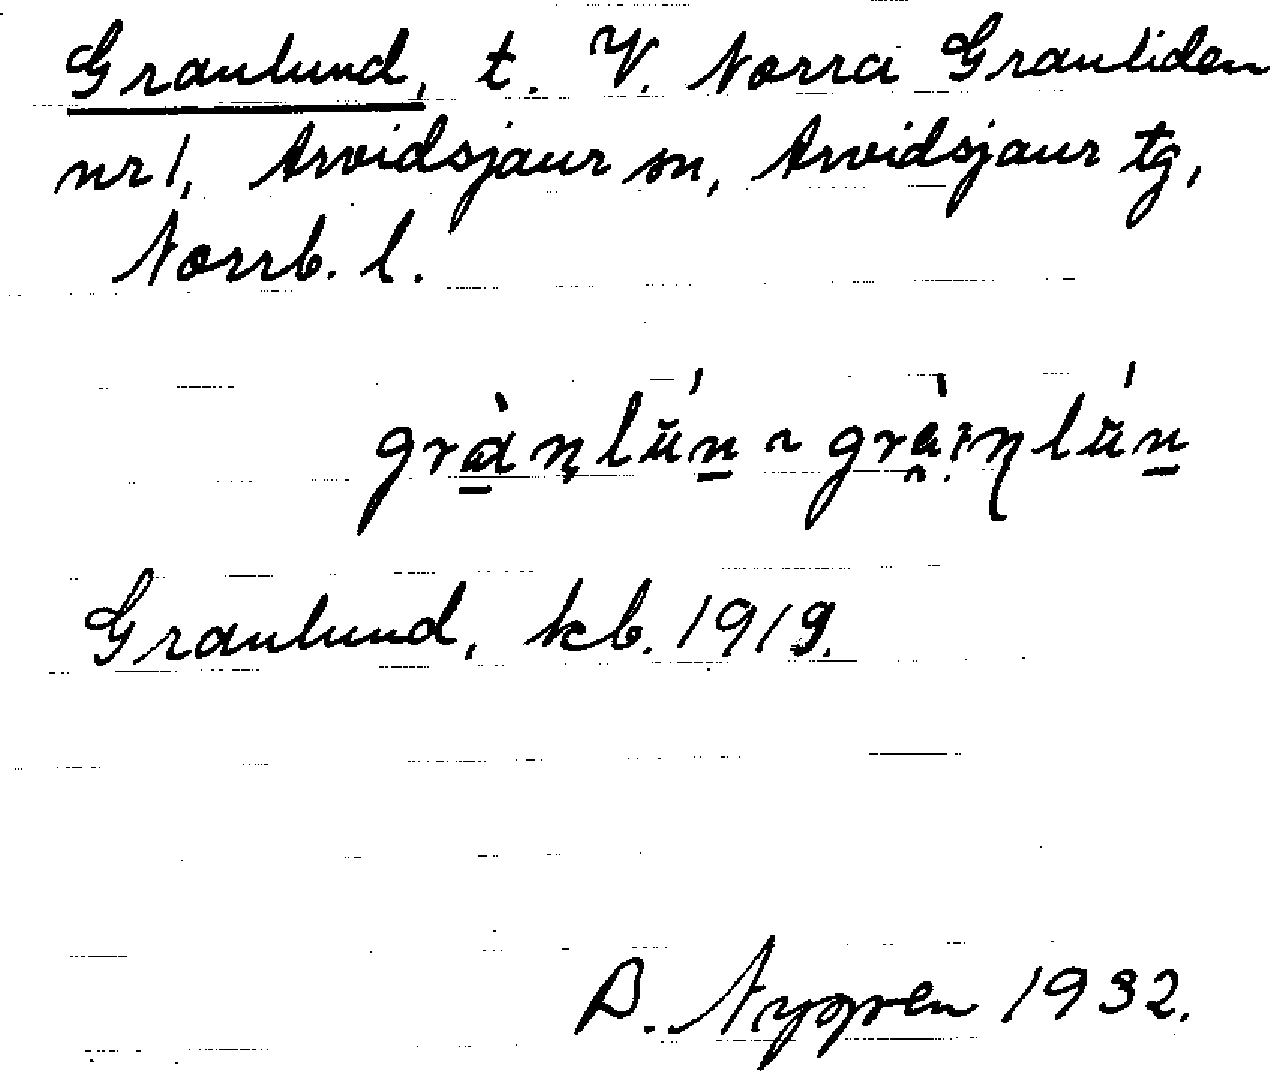 Granlund, t. V. Norra Granliden
nr 1, Arvidsjaur sn, Arvidsjaur tg,
Norrb. l.
Granlund, kb. 1919.
A. Nygren 1932.